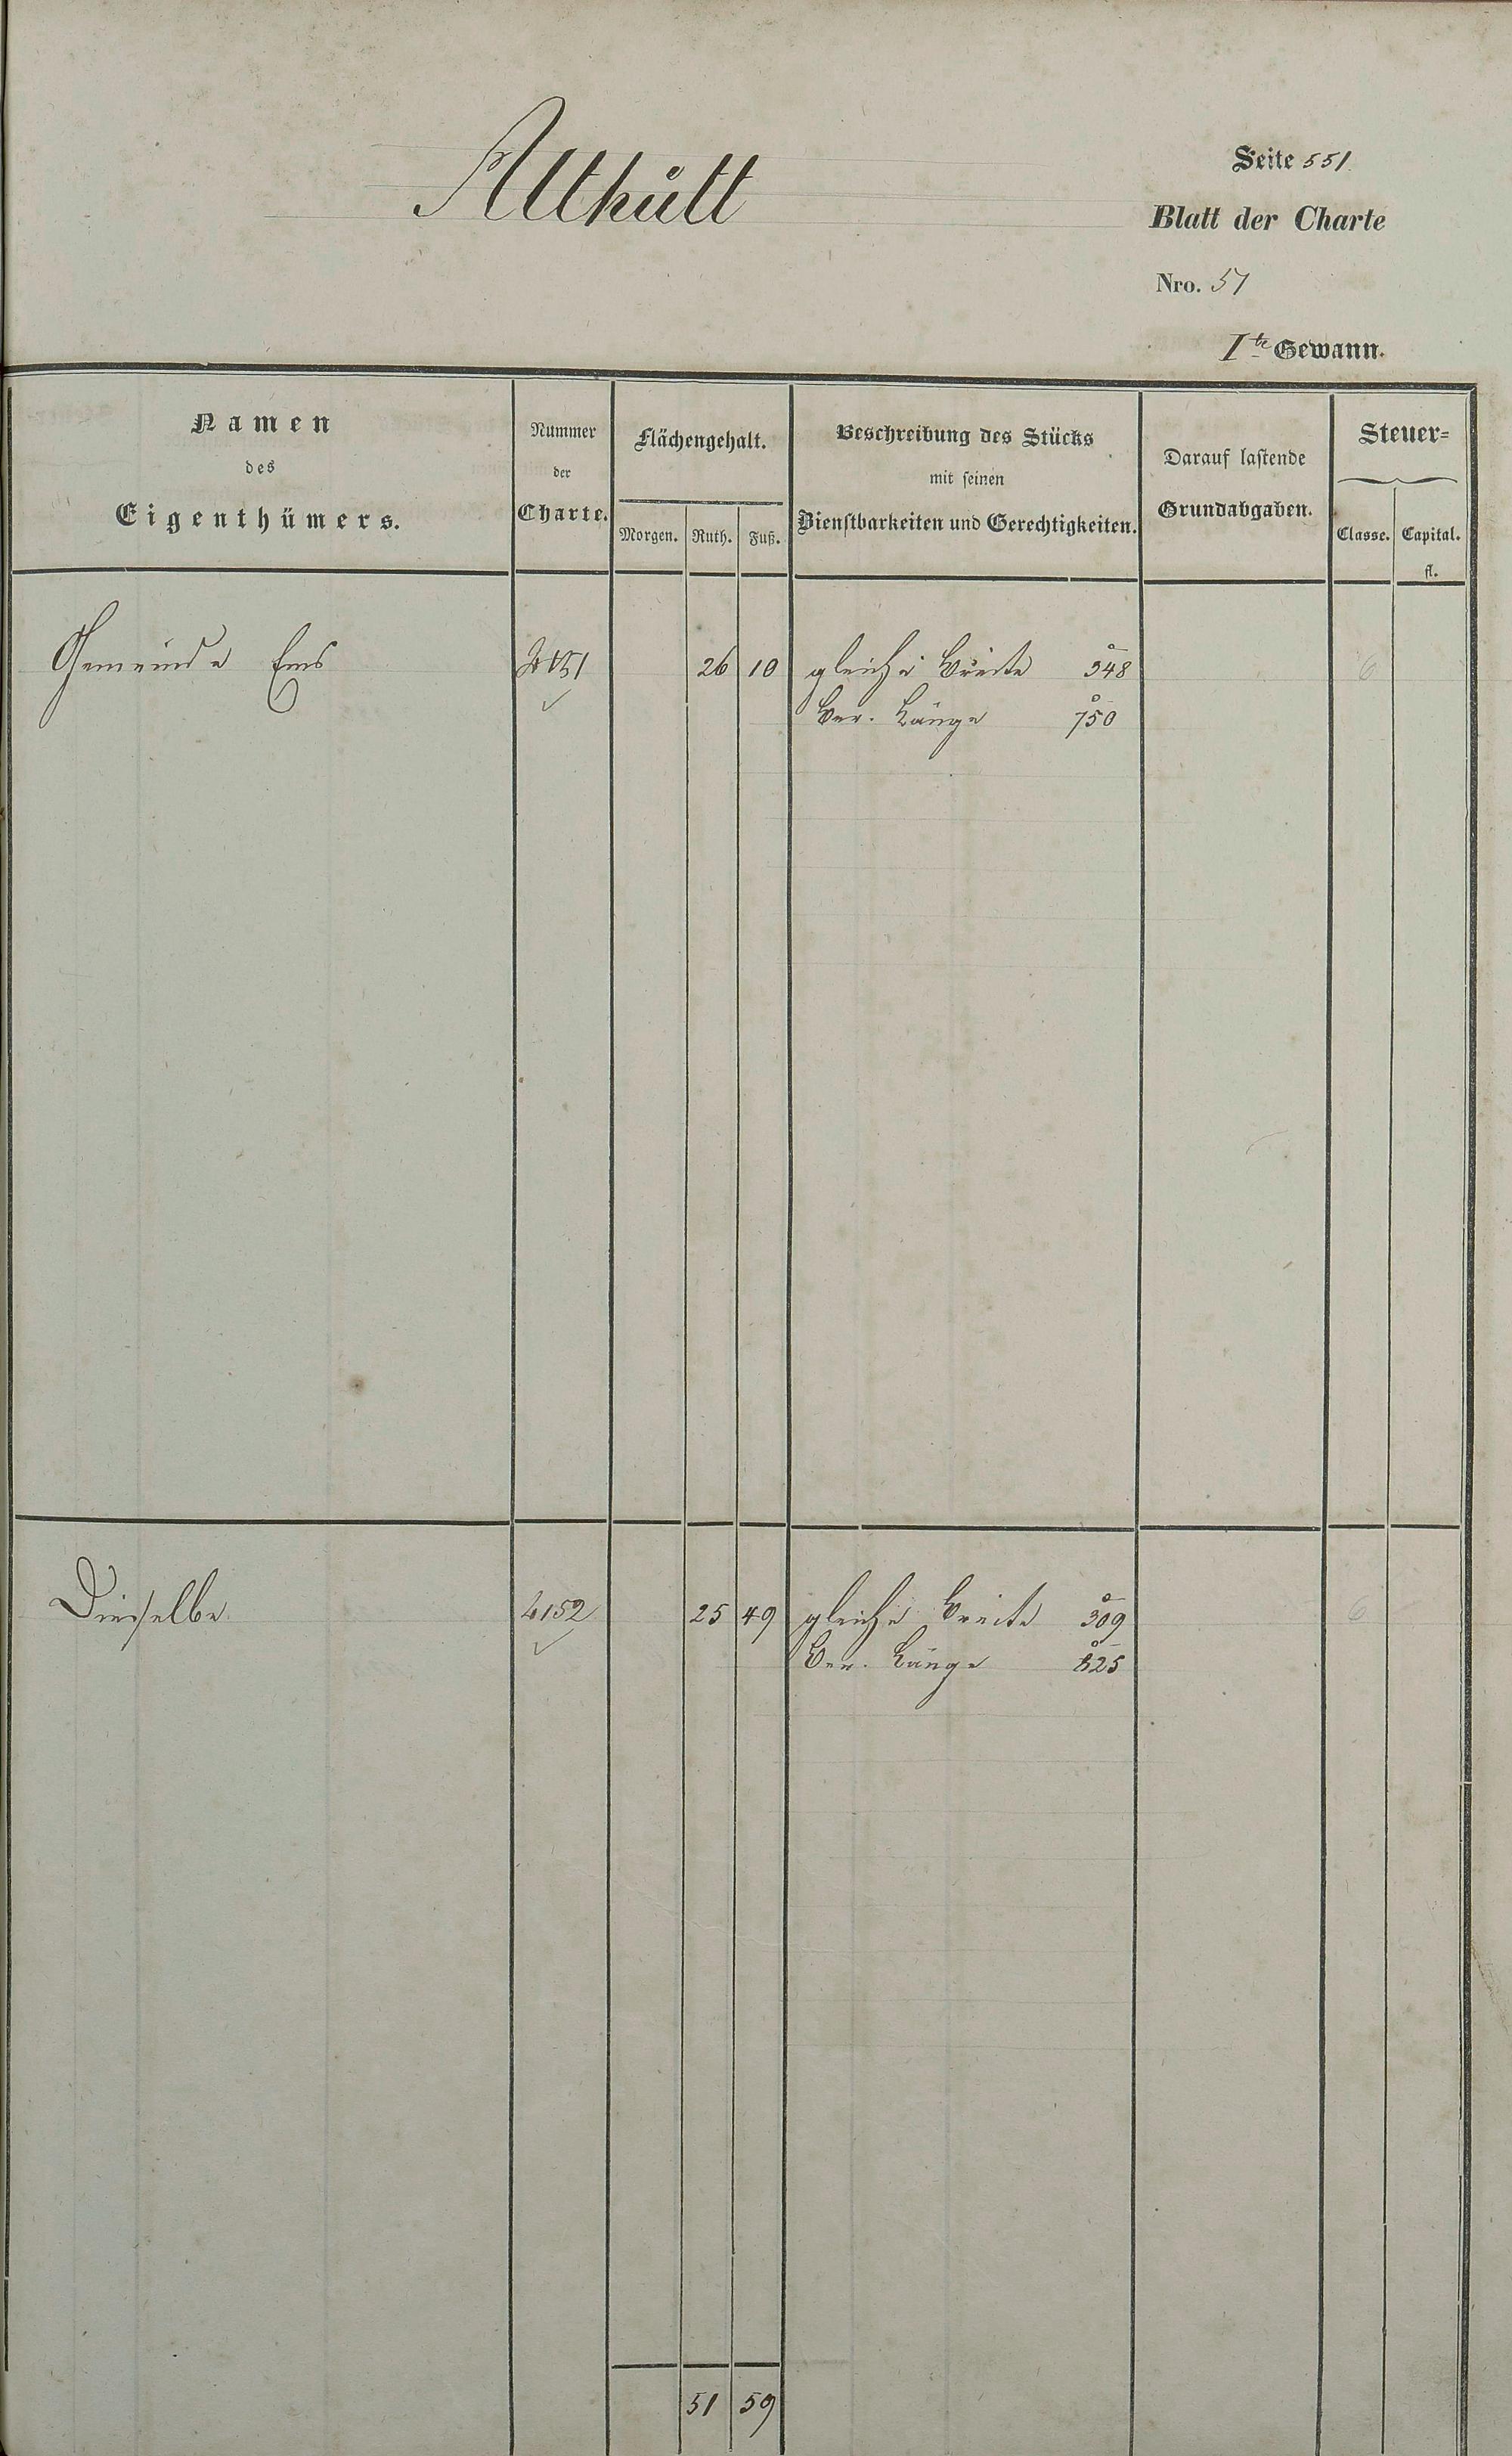 Althütt
Seite 551
Blatt der Charte
Nro. 51
Ite Gewann.
Namen
des
Eigenthümers.
Nummer
der
Charte.
Flächengehalt.
Morgen. Ruth. Fuß.
Beschreibung des Stücks
mit seinen
Dienstbarkeiten und Gerechtigkeiten.
Darauf lastende
Grundabgaben.
Steuer=
Classe. Capital.
fl.
Gemeinde Ems 4151 26 10 gleiche Breite 348 6
Ber. Länge 750
Dieselbe 4152 25 49 gleiche Breite 309 6
Ber. Länge 825
51 59